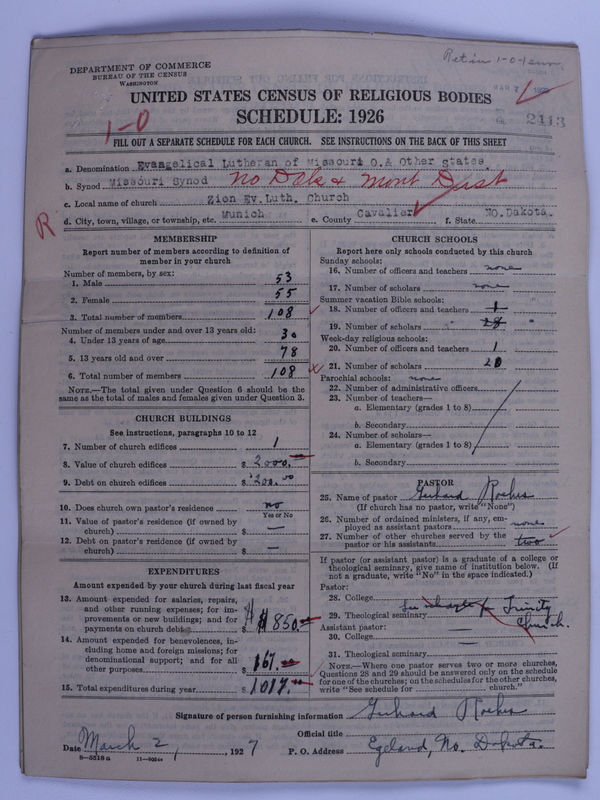 DEPARTMENT OF COMMERCE
BUREAU OF THE CENSUS
WASHINGTON
UNITED STATES CENSUS OF RELIGIOUS BODIES
SCHEDULE: 1926
1-0
2113
FILL OUT A SEPARATE SCHEDULE FOR EACH CHURCH. SEE INSTRUCTIONS ON THE BACK OF THIS SHEET
a. Denomination Evangelical Lutheran of Missouri O.& Other States
b. Synod Missouri Synod No Dak & Mont Dist
c. Local name of church Zion Ev.Luth. Church
d. City, town, village, or township, etc. Munich e. County Cavalier f. State No.Dakota.
R
MEMBERSHIP
Report number of members according to definition of
member in your church
Number of members, by sex:
1. Male 53
2. Female 55
3. Total number of members 108
Number of members under and over 13 years old:
4. Under 13 years of age 30
5. 13 years old and over 78
6. Total number of members 108
NOTE.—The total given under Question 6 should be the
same as the total of males and females given under Question 3.
CHURCH BUILDINGS
See instructions, paragraphs 10 to 12
7. Number of church edifices 1
8. Value of church edifices $ 2000.
9. Debt on church edifices $ 200.00
10. Does church own pastor's residence no
Yes or No
11. Value of pastor's residence (if owned by
church) $ —
12. Debt on pastor's residence (if owned by
church) $ —
EXPENDITURES
Amount expended by your church during last fiscal year
13. Amount expended for salaries, repairs,
and other running expenses; for im-
provements or new buildings; and for
payments on church debt $ 850.
14. Amount expended for benevolences, in-
cluding home and foreign missions; for
denominational support; and for all
other purposes $ 167.
15. Total expenditures during year $ 1017.
CHURCH SCHOOLS
Report here only schools conducted by this church
Sunday schools:
16. Number of officers and teachers none
17. Number of scholars none
Summer vacation Bible schools:
18. Number of officers and teachers 1
19. Number of scholars 28
Week-day religious schools:
20. Number of officers and teachers 1
21. Number of scholars 20
Parochial schools: none
22. Number of administrative officers
23. Number of teachers—
a. Elementary (grades 1 to 8)
b. Secondary
24. Number of scholars—
a. Elementary (grades 1 to 8)
b. Secondary
PASTOR
25. Name of pastor Gerhard
(If church has no pastor, write "None")
26. Number of ordained ministers, if any, em-
ployed as assistant pastors none
27. Number of other churches served by the
pastor or his assistants two
If pastor (or assistant pastor) is a graduate of a college or
theological seminary, give name of institution below. (If
not a graduate, write "No" in the space indicated.)
Pastor:
28. College
See schedule for Trinity
29. Theological seminary Church.
Assistant pastor:
30. College
31. Theological seminary
NOTE.—Where one pastor serves two or more churches,
Questions 28 and 29 should be answered only on the schedule
for one of the churches; on the schedules for the other churches,
write "See schedule for church."
Signature of person furnishing information Gerhard
Official title
Date March 2, 1927 P. O. Address Egeland, No. Dakota.
8-5518a 11-90244